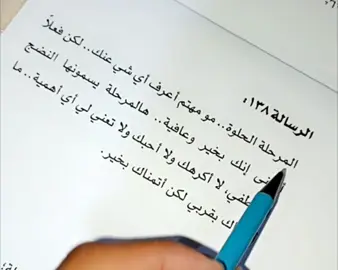 الرسالة ١٣٨،
المرحلة الحلوة.. مو مهتم أعرف أي شي عنك.. لكن فعلاً
إنك بخير وعافية.. هالمرحلة يسمونها النضج
لا أكرهك ولا أحبك ولا تعني لي أي أهمية.. ما
بقربي لكن أتمناك بخير.